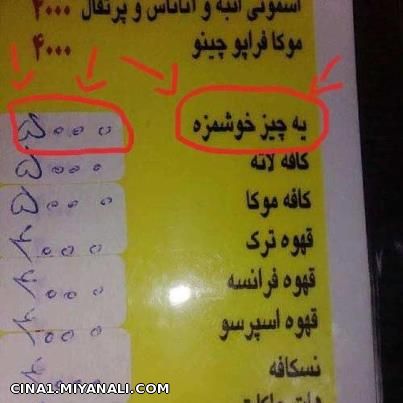 اسموتی انبه و آناناس و پرتقال ۴۰۰۰
موکا فراپو چینو ۴۰۰۰
یه چیز خوشمزه ۵۰۰۰
کافه لاته ۵۰۰۰
کافه موکا ۵۰۰۰
قهوه ترک
قهوه فرانسه
قهوه اسپرسو
نسکافه
هات چاکلت
CINA1.MIYANALI.COM